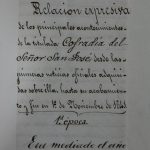 Relacion expresiva
de los principales acontecimientos
de la titulada Cofradía del
Señor San José desde las
primeras noticias oficiales adquiri-
das sobre ella, hasta su acabamiento
y fin en 1º de Noviembre de
1ª época
En mediado el año